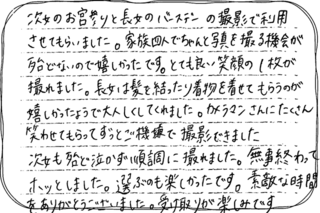 次女のお宮参りと長女のバースデーの撮影で利用
させてもらいました。家族四人でちゃんと写真を撮る機会が
殆どないので嬉しかったです。とても良い笑顔の1枚が
撮れました。長女は髪を結ったり着物を着せてもらうのが
嬉しかったようで大人しくしてくれました。カメラマンさんにたくさん
笑わせてもらってずっとご機嫌で撮影できました
次女も殆ど泣かず順調に撮れました。無事終わって
ホッとしました。選ぶのも楽しかったです。素敵な時間
をありがとうございました。受け取りが楽しみです